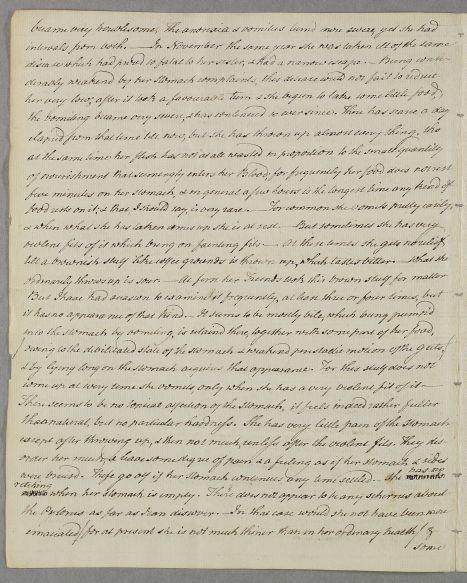 became very troublesome, The anorexia & vomiting turned more away, yet she had
intervals from both. — In November the same year she was taken ill of the same
disease which had proved so fatal to her sister, & had a narrow escape. — Being consi-
derably weakened by her stomach complaints, this disease could not fail to reduce
her very low; after it took a favourable turn & she began to take some little food,
the vomiting became very severe, & has continued so ever since. There has scarce a day
elapsed from that time till now, but she has thrown up almost every thing, tho
at the same time her flesh has not at all wasted in proportion to the small quantity
of nourishment that seemingly enters her Blood, for frequently her food does not rest
five minutes on her stomach, & in general a few hours is the longest time any kind of
food rests on it, & that, I should say, is very rare. — For common she vomits pretty easily,
& when what she has taken comes up she is at rest — But sometimes she has very
violent fits of it which bring on fainting fits — At these times she gets no relief
till a brownish stuff like coffee grounds is thrown up, which tastes bitter — What she
ordinarily throws up is sour — At first her Friends took this brown stuff for matter
But I have had occasion to examine it frequently, at least three or four times, but
it has no appearance of that kind. It seems to be mostly bile, which being pumped
into the stomach by vomiting, is retained there, together with some part of her food,
owing to the debilitated state of the stomach & weakened peristaltic motion of the guts,
& by lying long on the stomach acquires that appearance. For this stuff does not
come up at every time she vomits, only when she has a very violent fit of it —
There seems to be no topical affection of the stomach, it feels indeed rather fuller
than natural, but no particular hardness. She has very little pain of the stomach
except after throwing up, & then not much, unless after the violent fits. They dis-
order her much, & leave some degree of pain & a feeling as if her stomach & sides
were bruised. These go off if her stomach continues any time settled. — She has no
retching when her stomach is empty. There does not appear to be any schirrus about
the Pylorus as far as I can discover — In that case would she not have been more
emaciated, for at present she is not much thinner than in her ordinary health / &
some